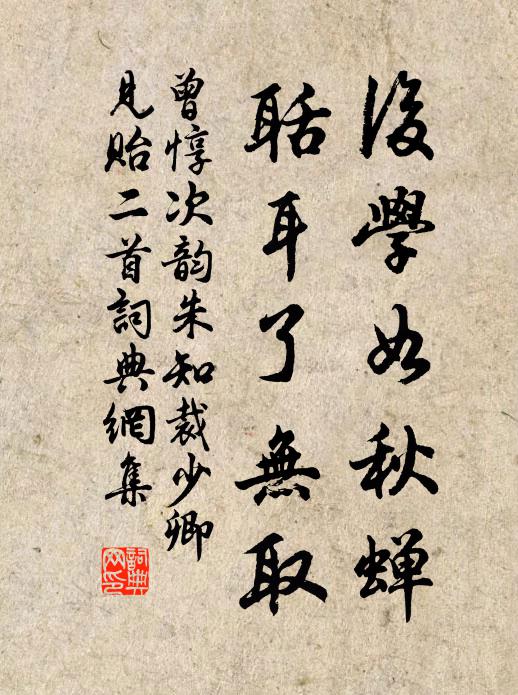 後學如秋蝉
聒耳了無取
曾惇次韵朱知裁少卿
見貽二首詞典網集
詞典网印